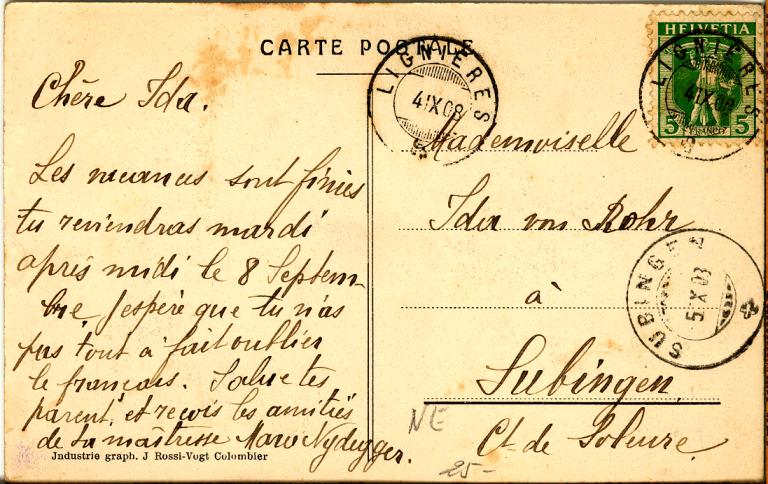 CARTE POSTALE
HELVETIA
5 FRANCO 5
LIGNIÈRES
4.IX.08
LIGNIÈRES
4.IX.08
Chère Ida.
Les vacances sont finies
tu reviendras mardi
après midi le 8 Septem-
bre j'espère que tu n'as
pas tout à fait oublier
le français. Salue tes
parents, et reçois les amitiés
de ta maîtresse Nydegger.
Mademoiselle
Ida von Rohr
à
Subingen
Ct. de Soleure.
SUBINGEN
5.IX.08
NE
25-
Jndustrie graph. J Rossi-Vogt Colombier